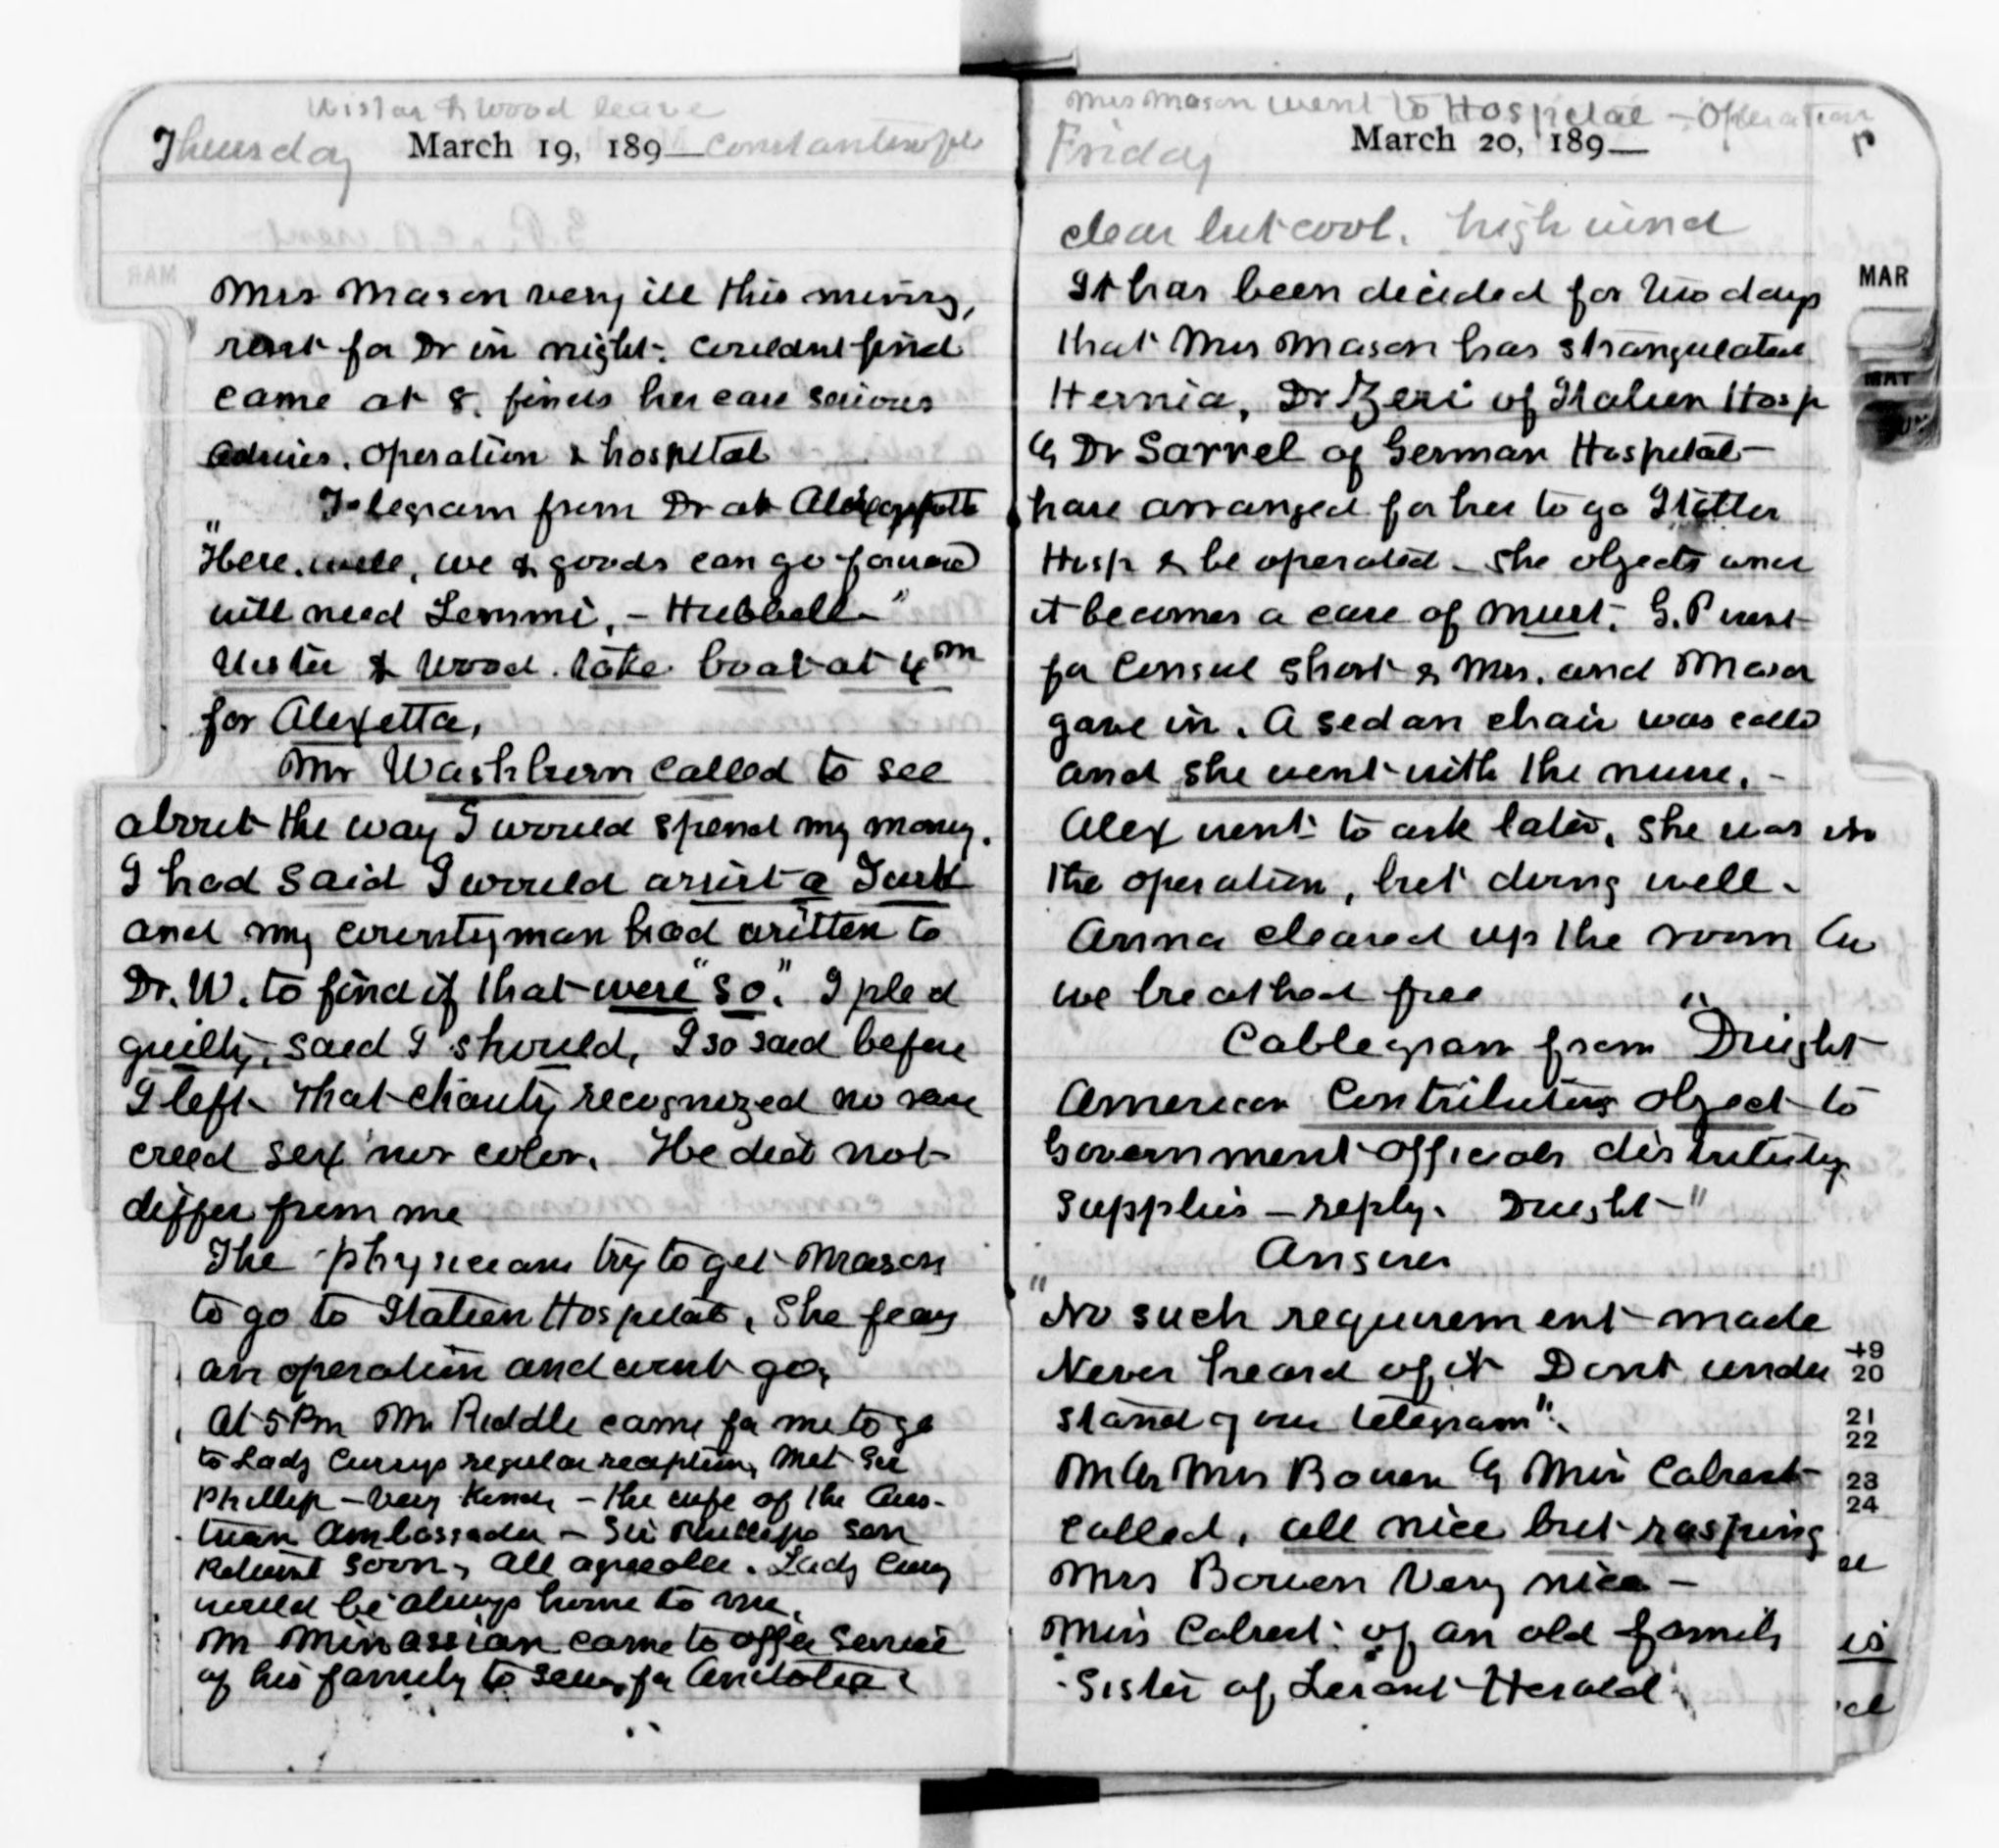 Wistar & Wood leave
Thursday March 19, 189— Constantinople
Mrs Mason very ill this morning,
sent for Dr in night. Couldnt find
came at 8. finds her case serious
advises. operation & hospital
Telegram from Dr at
"Here. well, we & goods can go forward
will need Lemmi, – Hubbell"
Wistar & Wood. take boat at 4 pm
for Alexetta,
Mr Washburn called to see
about the way I would spend my money.
I had said I would assist a Turk
and my countryman had written to
Dr. W. to find if that were "so." I pled
guilty, said I should, I so said before
I left that charity recognized no race
creed sex nor color. He did not
differ from me
The physicians try to get Mason
to go to Italien Hospital, She fears
an operation and wont go,
At 5 Pm Mr Riddle came for me to go
to Lady Currys regular reception, Met Sir
Phillip – very kind, – the wife of the Aus-
trian Ambassador – Sir Phillips son
Returnt soon, all agreeable. Lady Curry
would be always home to me,
Mr Minassian came to offer service
of his family to sew for Anitolia
Mrs Mason went to Hospital – Operation
Friday March 20, 189—
clear but cool. high wind
It has been decided for two days
that Mrs Mason has strangulated
Hernia, Dr Zeri of Italien Hosp
& Dr Sarrel of German Hospital –
have arranged for her to go Itatler
Hosp & be operated – she objects and
it becomes a case of must. G. P went
for Consul Short & Mrs. and Mason
gave in. A sedan chair was calld
and she went with the nurse. –
Alex went to ask later, she was in
the operation, but doing well –
Anna cleared up the room &
we breathed free
Cablegram from "Dwight
American Contributors object to
Government officials distributing
supplies – reply. Dwight –"
Answer
"No such requirement made
Never heard of it Dont under
stand your telegram".
Mr & Mrs Bowen & Miss Calvert
called, all nice but rasping
Mrs Bowen very nice –
Miss Calvert: of an old family
Sister of Levant Herald
MAR
MAY
JUN
19
20
21
22
23
24